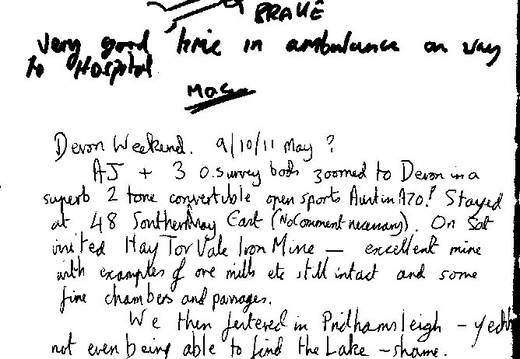 BRAKE
Very good time in ambulance on way
To Hospital
Mac
Devon Weekend. 9/10/11 May ?
AJ + 3 o.survey bods zoomed to Devon in a
superb 2 tone convertible open sports Austin A70! Stayed
at 48 Southernhay East (No Comment necessary). On Sat
visited Hay Tor Vale Iron Mine — excellent mine
with examples of ore mills etc still intact and some
fine chambers and passages.
We then ferreted in Pridhamsleigh - yechh
not even being able to find the Lake - shame.